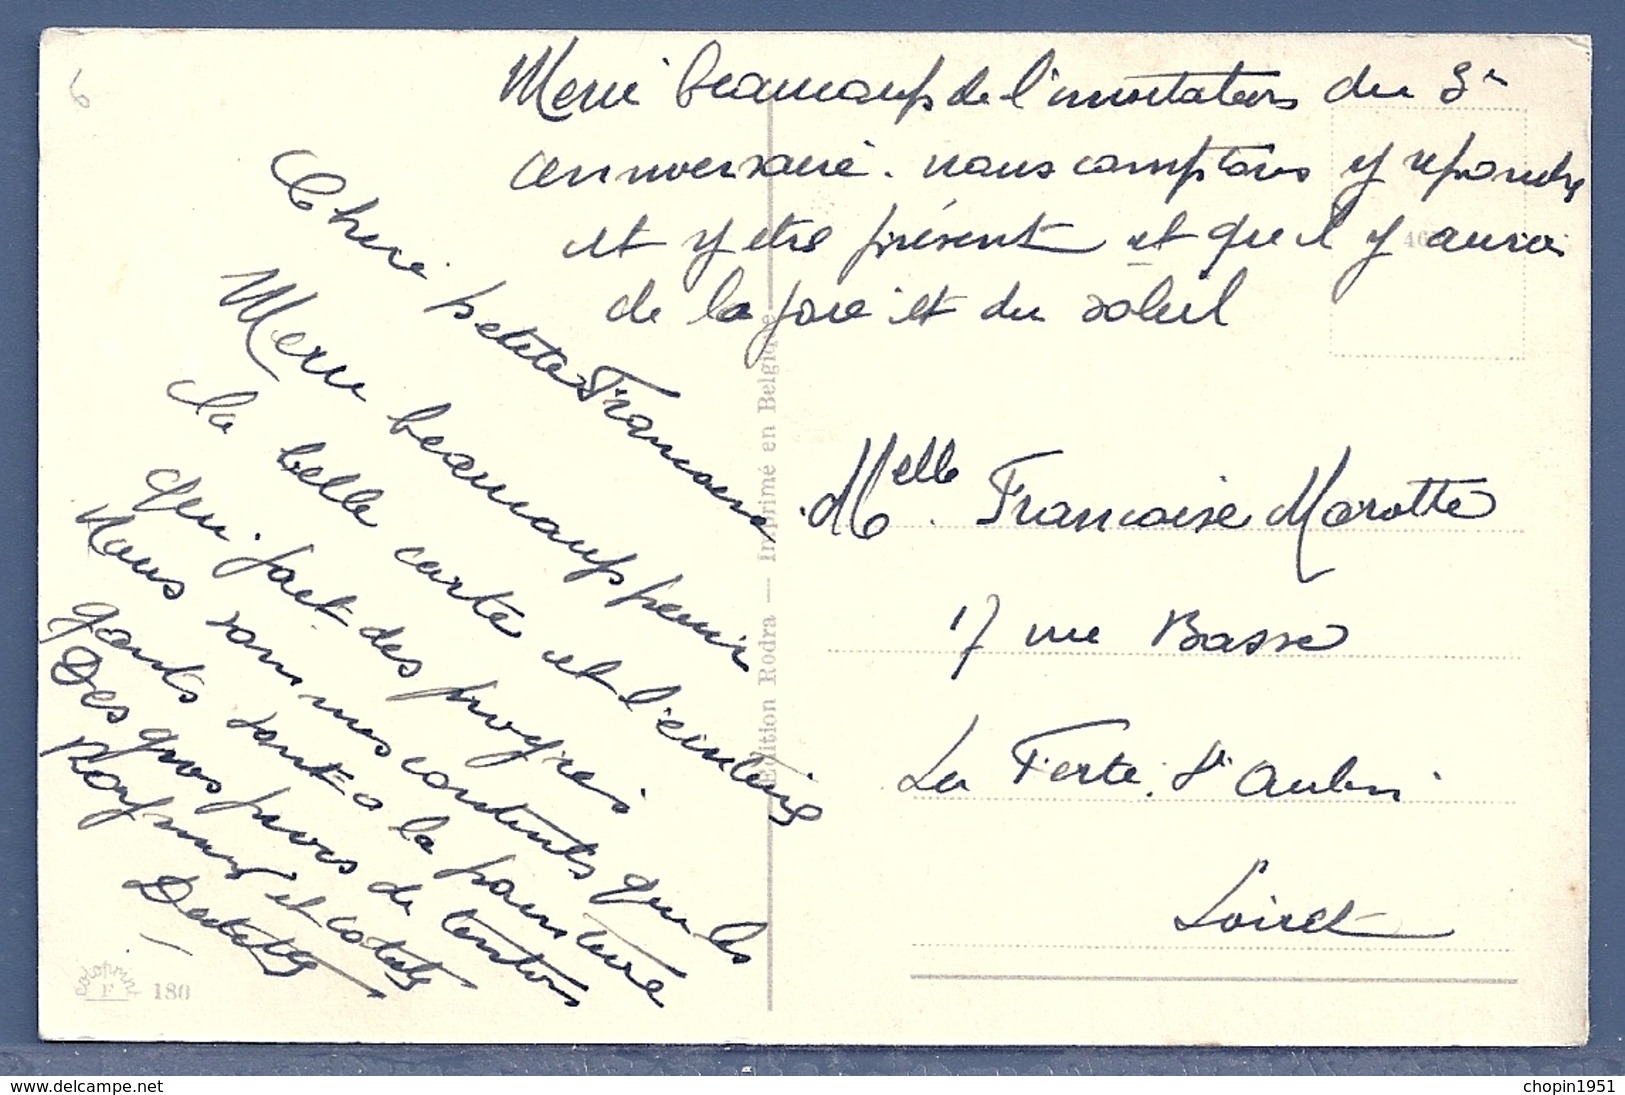 6
Chère petite Françoise
Merci beaucoup pour
la belle carte et l'écriture
qui fait des progrès
Nous sommes contents que les
gants sont à la pointure
Des gros poves de tontons
Raymond et
Merci beaucoup de l'invitation du 3e
anniversaire. nous comptons y repondre
et y etre présent et qu'il y aura
de la joie et du soleil
Melle Françoise Marotte
17 rue Basse
La Ferte St Aubin
Loiret
Edition Rodra — Imprimé en Belgique
coloprint
F 180
delcampe.net
chopin1951